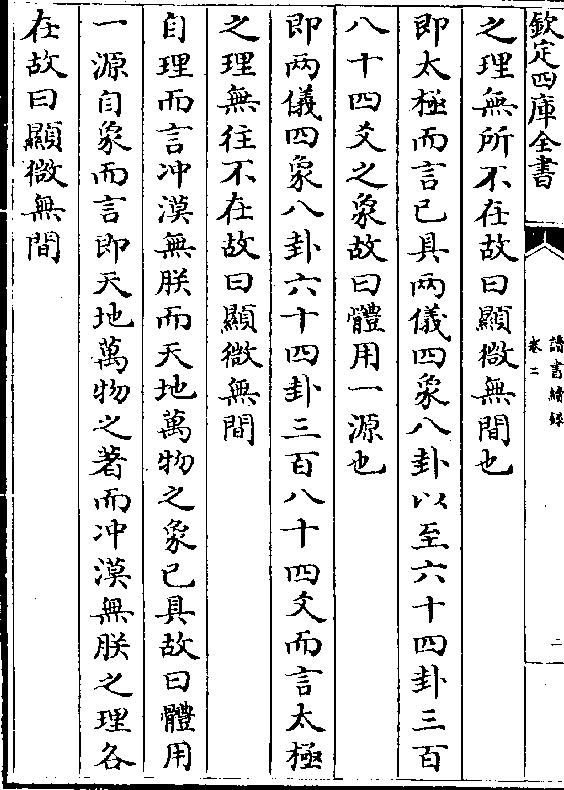 欽定四庫全書
讀書續録
卷二
二
之理無所不在故曰顯微無間也
即太極而言已具兩儀四象八卦以至六十四卦三百
八十四爻之象故曰體用一源也
即兩儀四象八卦六十四卦三百八十四爻而言太極
之理無往不在故曰顯微無間
自理而言冲漠無朕而天地萬物之象已具故曰體用
一源自象而言即天地萬物之著而冲漠無朕之理各
在故曰顯微無間